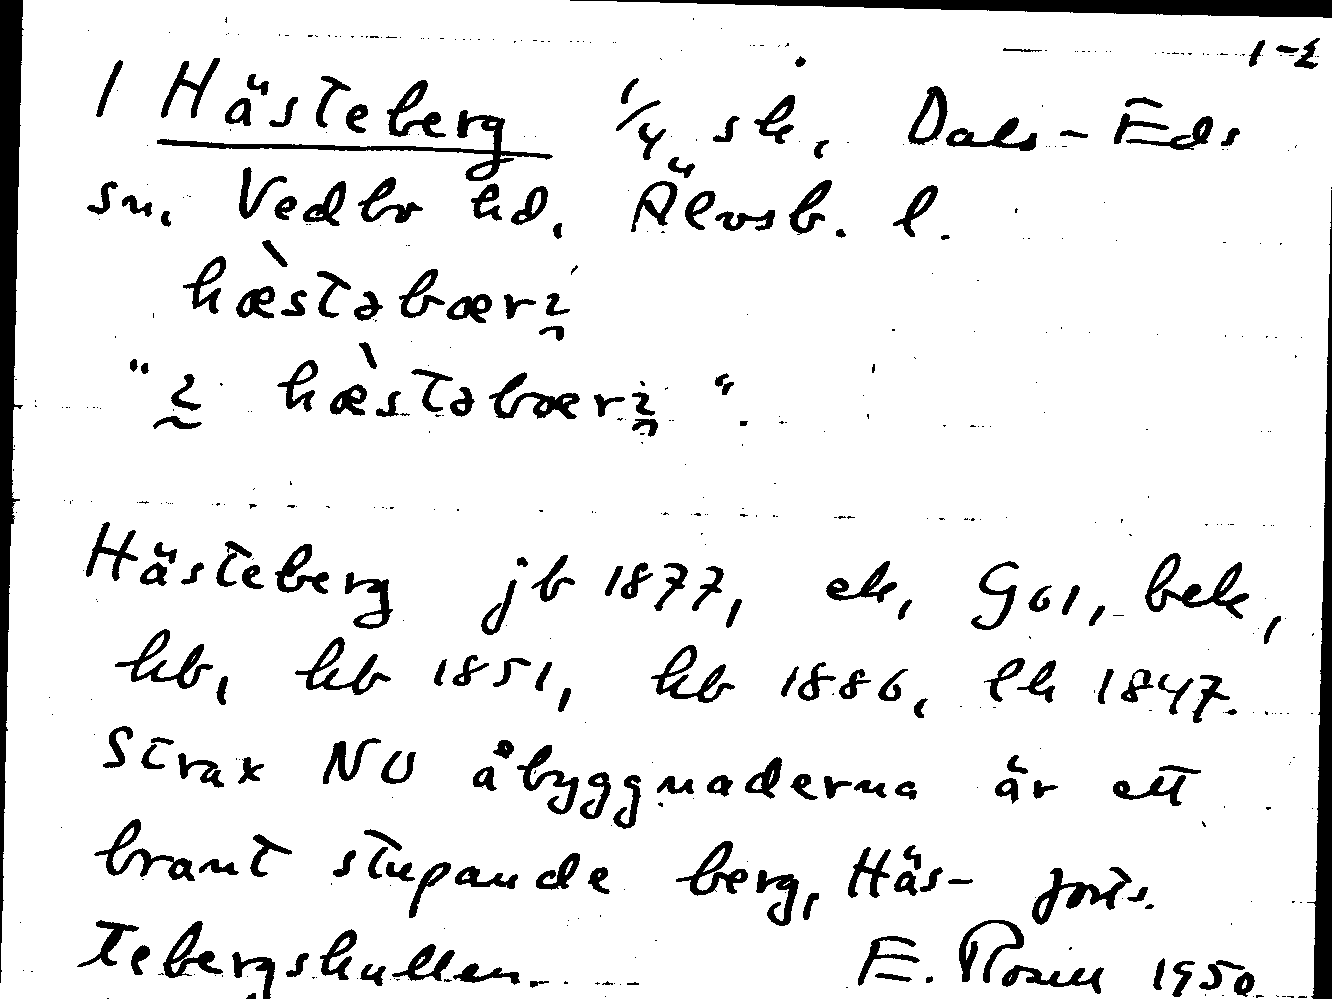 1-2
1 Hästeberg 1/4 sk, Dals-Eds
sn, Vedbo hd, Älvsb. l.
hæ̀stəbærı̯
"ı̰ hæ̀stəbærı̯".
Hästeberg jb 1877, ek, G61, bek,
kb, kb 1851, kb 1886, lk 1847.
Strax NO åbyggnaderna är ett
brant stupande berg, Häs- forts.
tebergskullen. E. Rosell 1950